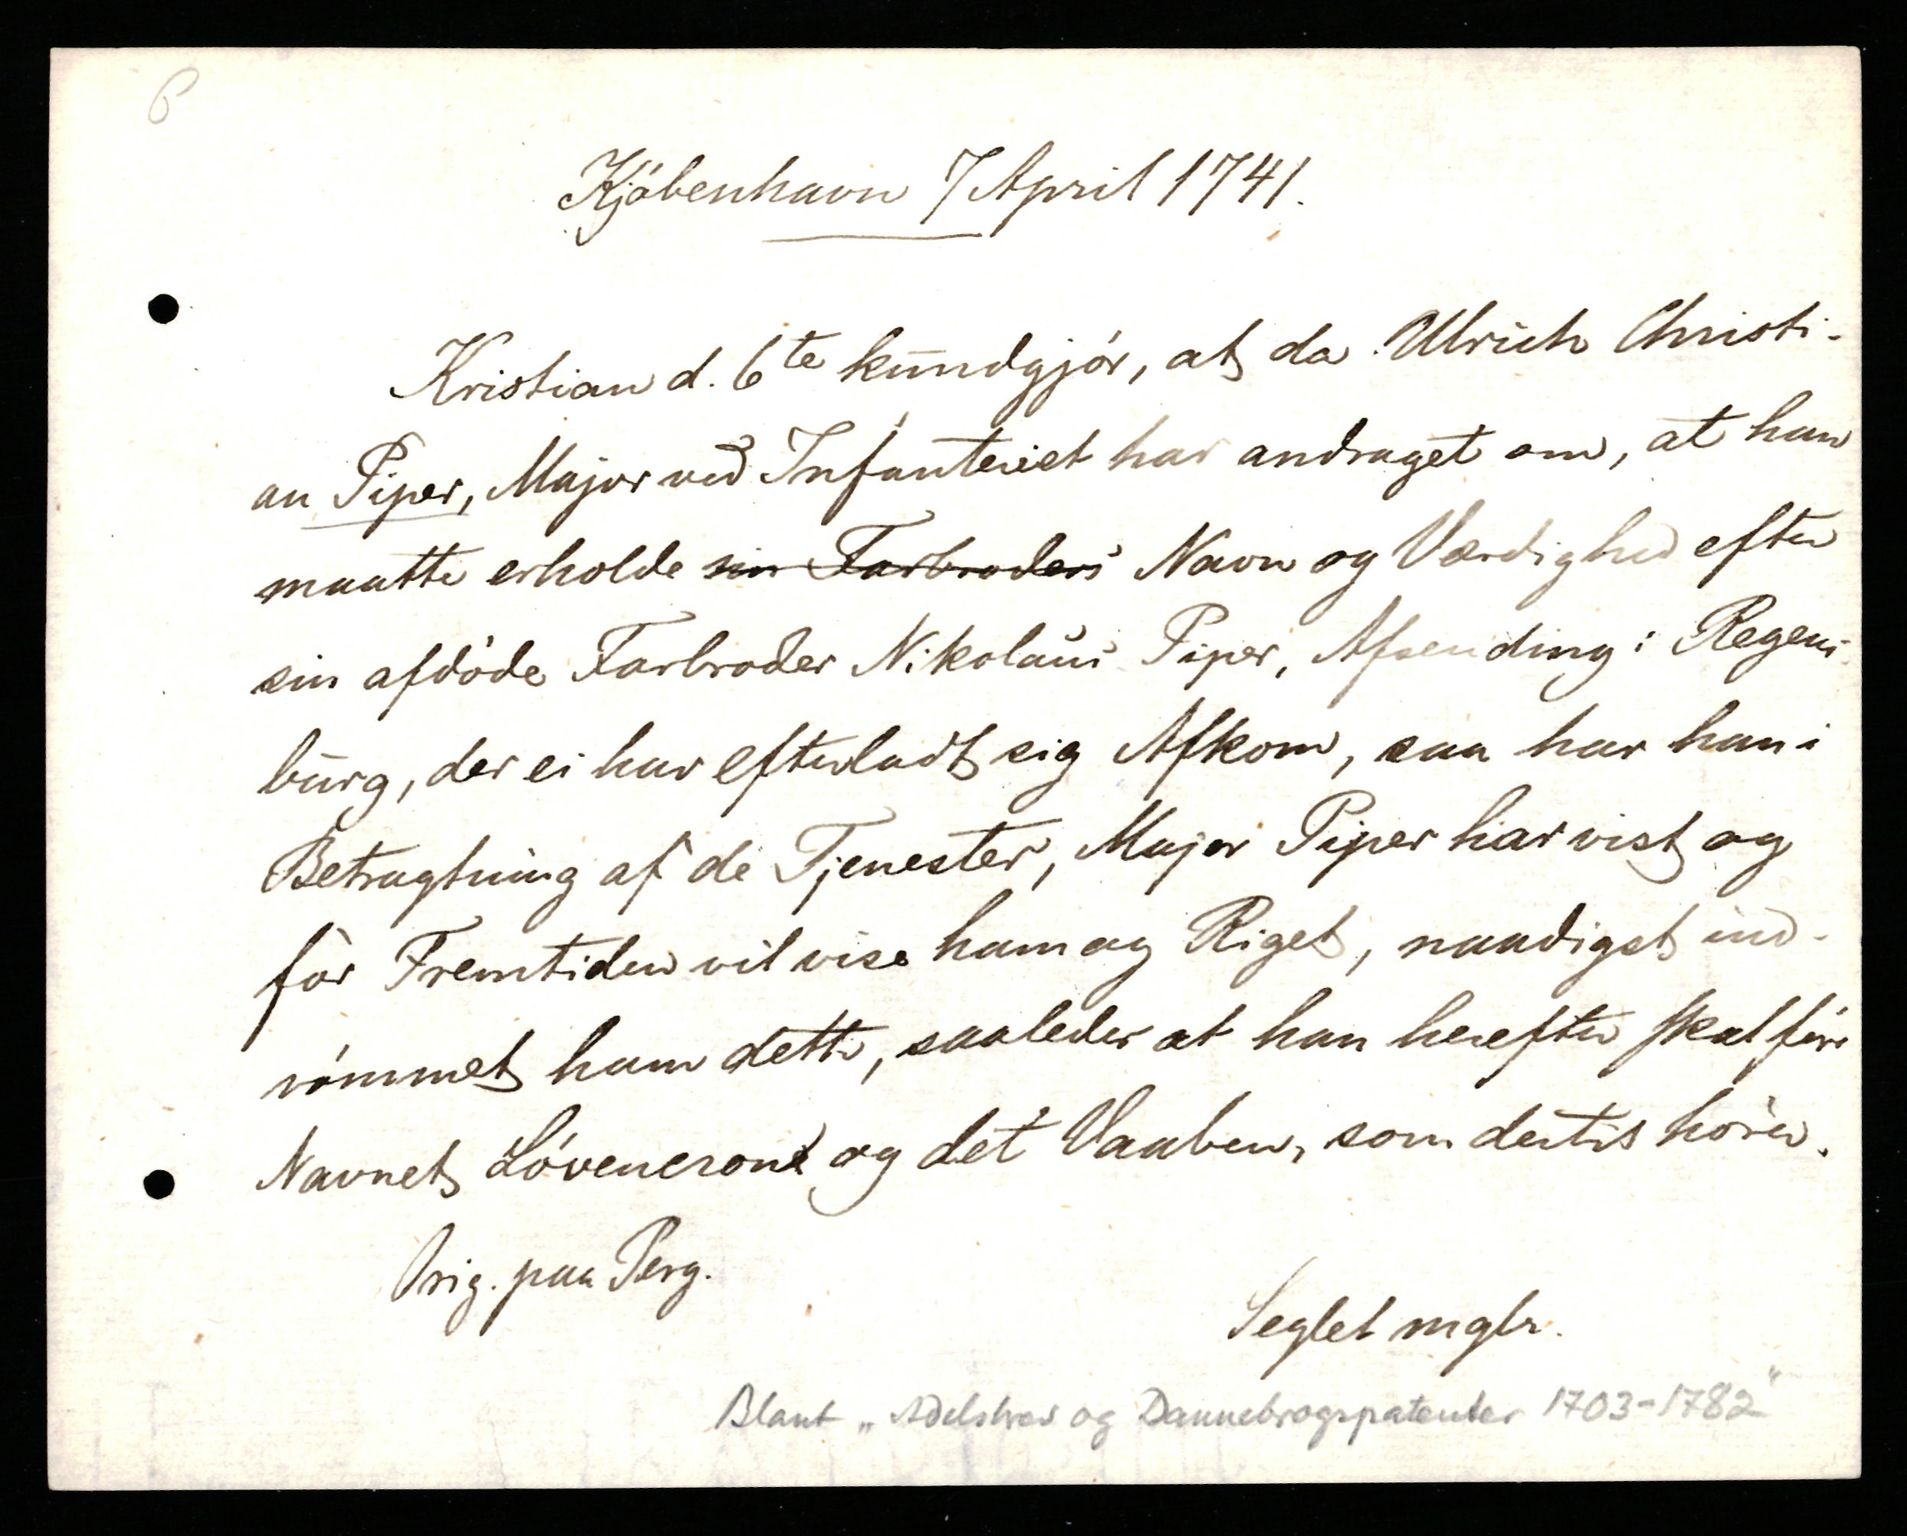 6
Kjöbenhavn 7 April 1741.
Kristian d. 6te kundgjör, at da Ulrich Christi-
an Piper, Major ved Infanteriet har andraget om, at han
maatte erholde sin Farbroders Navn og Værdighed efter
sin afdöde Farbroder Nikolaus Piper, Afsending i Regens-
burg, der ei har efterladt sig Afkom, saa har han i
Betragtning af de Tjenester, Major Piper har vist og
for Fremtiden vil vise ham og Riget, naadigst ind-
römmet ham dette, saaledes at han herefter skal före
Navnet Lövencrone og det Vaaben, som dertil hörer.
Orig. paa Perg.
Seglet mglr.
Blant „Adelsbrev og Dannebrogspatenter 1703-1782"